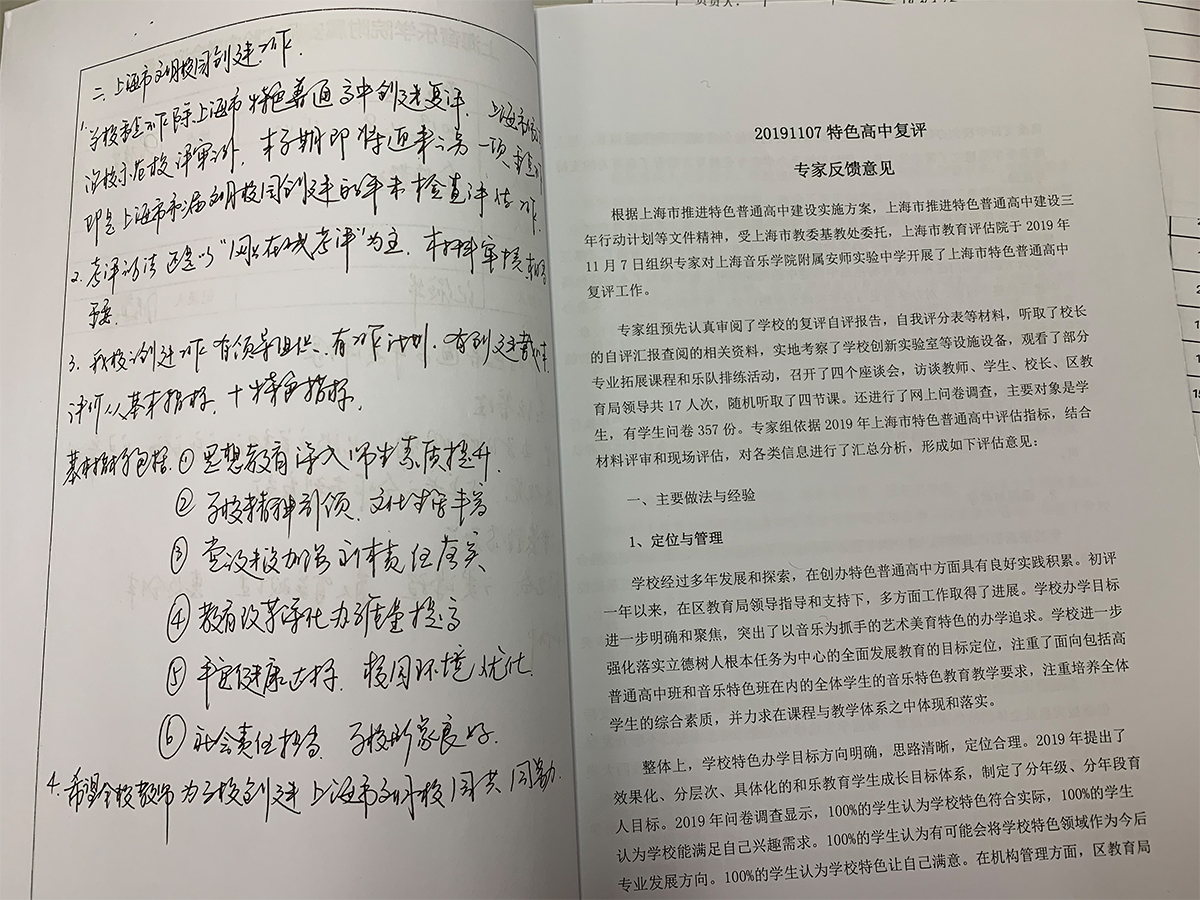 二、上海市文明校园创建工作.
1. 学校重点工作除上海市特色普通高中创建复评、上海市依法
治校示范校评审外, 本学期即将迎来之另一项重点工作
即是上海市市届文明校园创建的年末检查评估工作
2. 考评方法还是以"网上在线考评"为主. 材料审核来的
3. 我校创建工作有领导组织、有工作计划. 有创建
评价从基本指标, 十特色指标.
基本指标包括. ① 思想教育深入师生素质提升.
② 学校精神引领. 文化生活丰富
③ 党设建设加强主体责任落实
④ 教育改革深化办学质量提高
⑤ 平安健康达标. 校园环境优化
⑥ 社会责任担当. 学校形象良好.
4. 希望全校教师为学校创建上海市文明校园共同努力.
20191107 特色高中复评
专家反馈意见
根据上海市推进特色普通高中建设实施方案，上海市推进特色普通高中建设三
年行动计划等文件精神，受上海市教委基教处委托，上海市教育评估院于 2019 年
11 月 7 日组织专家对上海音乐学院附属安师实验中学开展了上海市特色普通高中
复评工作。
专家组预先认真审阅了学校的复评自评报告，自我评分表等材料，听取了校长
的自评汇报查阅的相关资料，实地考察了学校创新实验室等设施设备，观看了部分
专业拓展课程和乐队排练活动，召开了四个座谈会，访谈教师、学生、校长、区教
育局领导共 17 人次，随机听取了四节课。还进行了网上问卷调查，主要对象是学
生，有学生问卷 357 份。专家组依据 2019 年上海市特色普通高中评估指标，结合
材料评审和现场评估，对各类信息进行了汇总分析，形成如下评估意见：
一、主要做法与经验
1、定位与管理
学校经过多年发展和探索，在创办特色普通高中方面具有良好实践积累。初评
一年以来，在区教育局领导指导和支持下，多方面工作取得了进展。学校办学目标
进一步明确和聚焦，突出了以音乐为抓手的艺术美育特色的办学追求。学校进一步
强化落实立德树人根本任务为中心的全面发展教育的目标定位，注重了面向包括高
普通高中班和音乐特色班在内的全体学生的音乐特色教育教学要求，注重培养全体
学生的综合素质，并力求在课程与教学体系之中体现和落实。
整体上，学校特色办学目标方向明确，思路清晰，定位合理。2019 年提出了
效果化、分层次、具体化的和乐教育学生成长目标体系，制定了分年级、分年段育
人目标。2019 年问卷调查显示，100%的学生认为学校特色符合实际，100%的学生
认为学校能满足自己兴趣需求。100%的学生认为有可能会将学校特色领域作为今后
专业发展方向。100%的学生认为学校特色让自己满意。在机构管理方面，区教育局